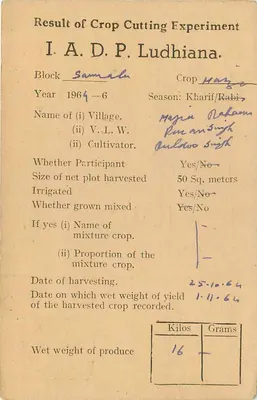 Result of Crop Cutting Experiment
I. A. D. P. Ludhiana.
Block Samrala Crop Maize
Year 1964 —6 Season: Kharif/Rabi
Name of (i) Village.
(ii) V. L. W.
(ii) Cultivator. Singh
Whether Participant Yes/No
Size of net plot harvested 50 Sq. meters
Irrigated Yes/No
Whether grown mixed Yes/No
If yes (i) Name of
mixture crop.
(ii) Proportion of the
mixture crop.
Date of harvesting. 25-10-64
Date on which wet weight of yield 1-11-64
of the harvested crop recorded.
Kilos Grams
Wet weight of produce 16 —